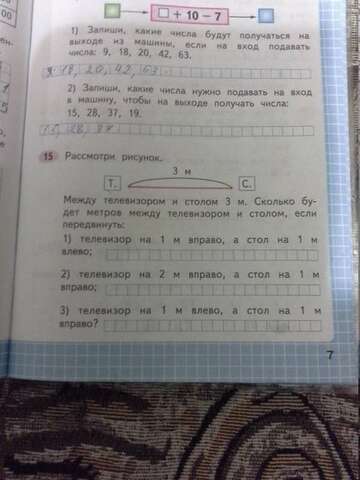 00
☐ + 10 – 7
1) Запиши, какие числа будут получаться на
выходе из машины, если на вход подавать
числа: 9, 18, 20, 42, 63.
9, 18, 20, 42, 63
2) Запиши, какие числа нужно подавать на вход
в машину, чтобы на выходе получать числа:
15, 28, 37, 19.
15 Рассмотри рисунок.
3 м
Т. С.
Между телевизором и столом 3 м. Сколько бу-
дет метров между телевизором и столом, если
передвинуть:
1) телевизор на 1 м вправо, а стол на 1 м
влево;
2) телевизор на 2 м вправо, а стол на 1 м
вправо;
3) телевизор на 1 м влево, а стол на 1 м
вправо?
7